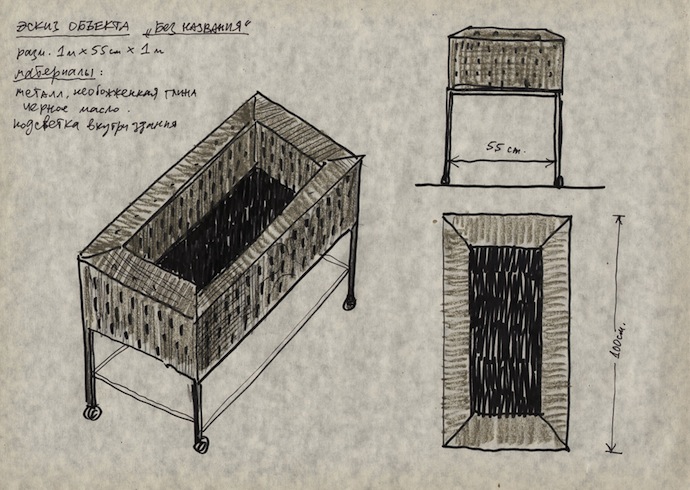 ЭСКИЗ ОБЪЕКТА „БЕЗ НАЗВАНИЯ“
разм. 1м x 55см x 1м
материалы:
металл, необожженная глина
черное масло.
подсветка внутри здания
55 см.
100 см.